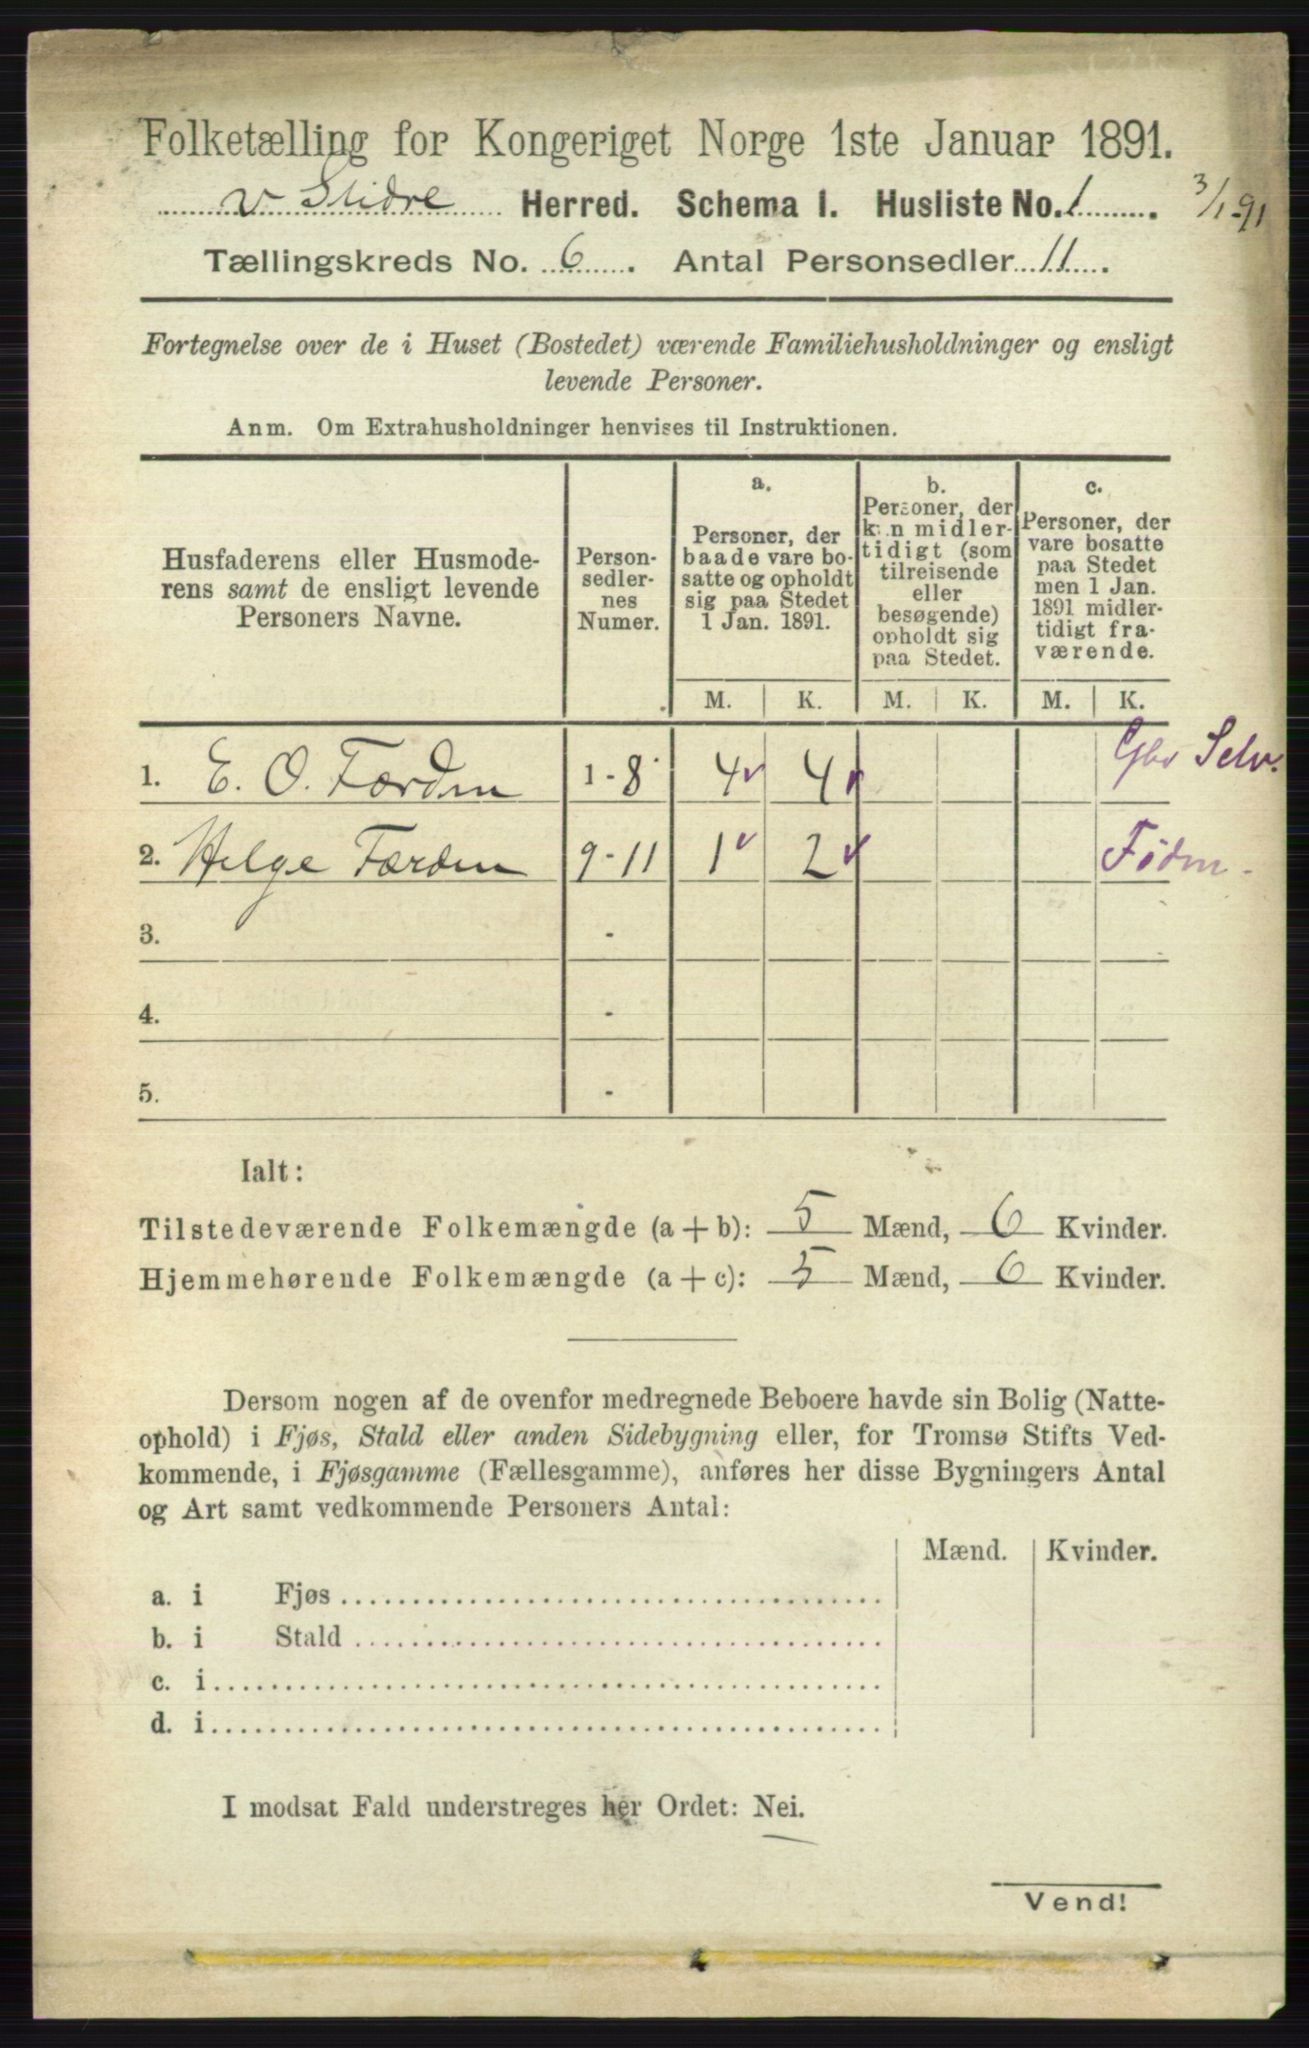 Folketælling for Kongeriget Norge 1ste Januar 1891.
V Slidre Herred. Schema I. Husliste No. 1. 3/1-91
Tællingskreds No. 6. Antal Personsedler 11.
Fortegnelse over de i Huset (Bostedet) værende Familiehusholdninger og ensligt
levende Personer.
Anm. Om Extrahusholdninger henvises til Instruktionen.
Husfaderens eller Husmode-
rens samt de ensligt levende
Personers Navne.
Person-
sedler-
nes
Numer.
a.
Personer, der
baade vare bo-
satte og opholdt
sig paa Stedet
1 Jan. 1891.
b.
Personer, der
kun midler-
tidigt (som
tilreisende
eller
besøgende)
opholdt sig
paa Stedet.
c.
Personer, der
vare bosatte
paa Stedet
men 1 Jan.
1891 midler-
tidigt fra-
værende.
M. K. M. K. M. K.
1. E. O. Færden 1-8 4 4 Gbr Selv.
2. Helge Færden 9-11 1 2
3. -
4. -
5. -
Ialt:
Tilstedeværende Folkemængde (a + b): 5 Mænd, 6 Kvinder.
Hjemmehørende Folkemængde (a + c): 5 Mænd, 6 Kvinder.
Dersom nogen af de ovenfor medregnede Beboere havde sin Bolig (Natte-
ophold) i Fjøs, Stald eller anden Sidebygning eller, for Tromsø Stifts Ved-
kommende, i Fjøsgamme (Fællesgamme), anføres her disse Bygningers Antal
og Art samt vedkommende Personers Antal:
Mænd. Kvinder.
a. i Fjøs
b. i Stald
c. i
d. i
I modsat Fald understreges her Ordet: Nei.
Vend!